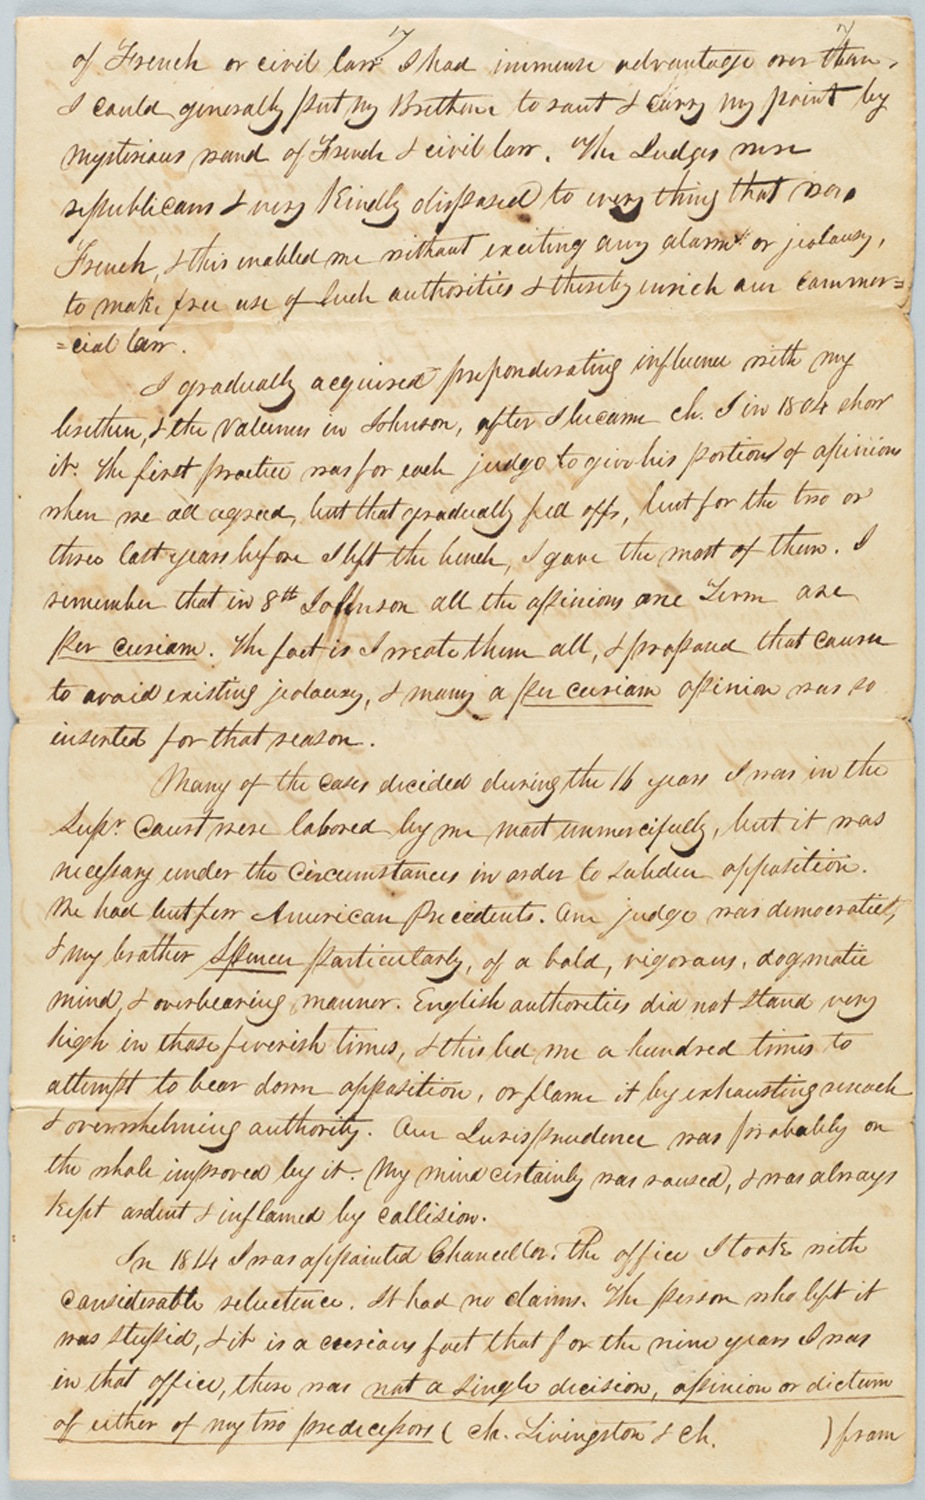 of French or civil law I had immense advantage over them,
I could generally put my Brethren to rout & carry my point by
mysterious wand of French & civil law. The Judges were
republicans & very Kindly disposed to every thing that was
French, & this enabled me without exciting any alarm or jealousy,
to make free use of such authorities & thereby enrich our commer=
=cial law.
I gradually acquired preponderating influence with my
brethren, & the Volumes in Johnson, after I became ch. J in 1804 show
it. The first practice was for each judge to give his portion of opinions
when we all agreed, but that gradually fell off, but for the two or
three last years before I left the bench, I gave the most of them. I
remember that in 8th Johnson all the opinions one Term are
per curiam. The fact is I wrote them all, & proposed that course
to avoid existing jealousy, & many a per curiam opinion was so
inserted for that reason.
Many of the cases decided during the 16 years I was in the
Supr. Court were labored by me most unmercifully, but it was
necessary under the circumstances in order to subdue opposition.
We had but few American Precedents. Our judge was democratick,
& my brother Spencer particularly, of a bold, vigorous, dogmatic
mind, & overbearing manner. English authorities did not stand very
high in those feverish times, & this led me a hundred times to
attempt to bear down opposition, or it by exhausting research
& overwhelming authority. Our Jurisprudence was probably on
the whole improved by it. My mind certainly was roused, & was always
kept ardent & inflamed by collision.
In 1814 I was appointed Chancellor. The office I took with
considerable reluctence. It had no claims. The person who left it
was stupid, & it is a curious fact that for the nine years I was
in that office, there was not a single decision, opinion or dictum
of either of my two predecessors (ch. Livingston & ch. ) from